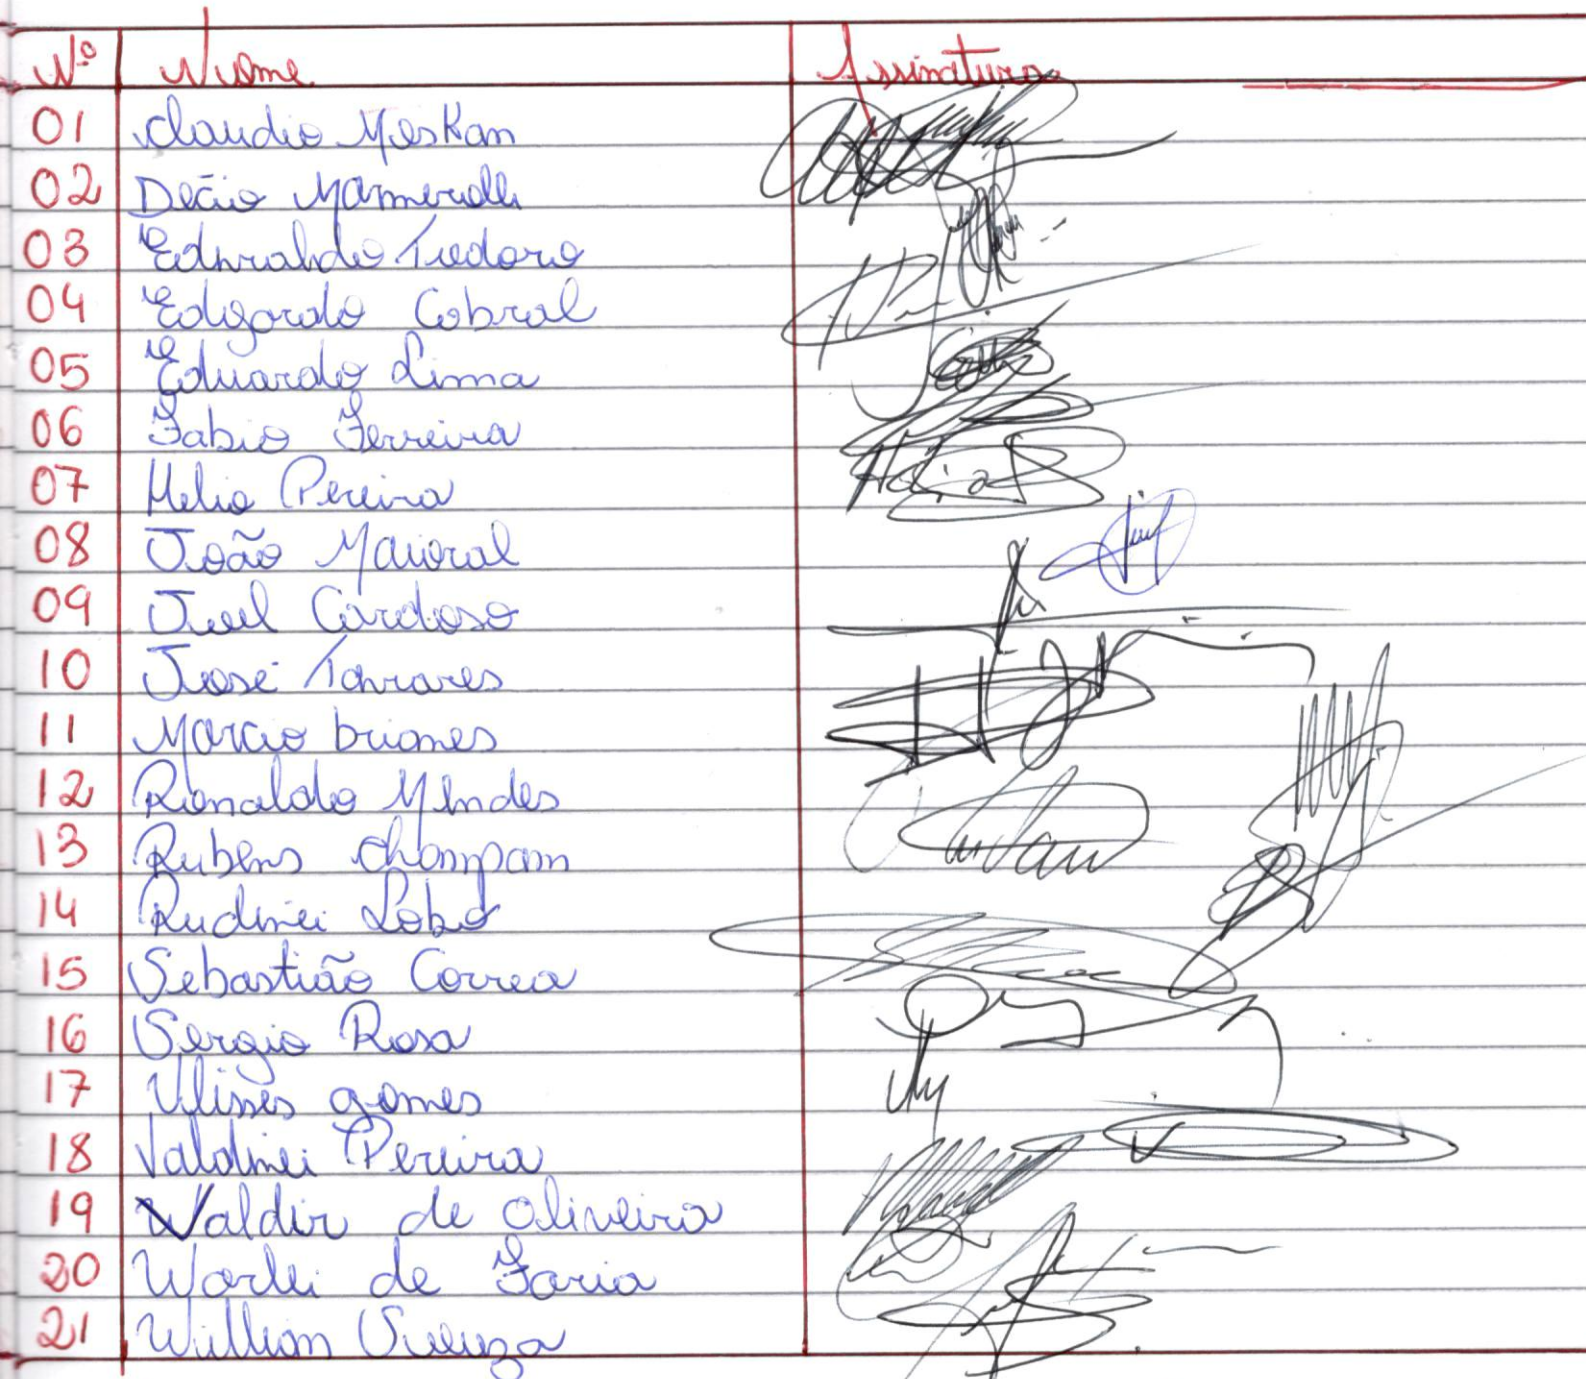 Nº Nome Assinatura
01 Claudio Moskan
02 Décio Mamerolli
03 Edvaldo Teodoro
04 Edgardo Cabral
05 Eduardo Lima
06 Fabio Ferreira
07 Helio Pereira
08 João Maioral
09 Joel Cardoso
10 José Tavares
11 Marcio briones
12 Ronaldo Mendes
13 Rubens Champam
14 Rudinei Lobo
15 Sebastião Correa
16 Sergio Rosa
17 Ulisses gomes
18 Valdinei Pereira
19 Valdir de Oliveira
20 Warlei de Faria
21 Willian Souza